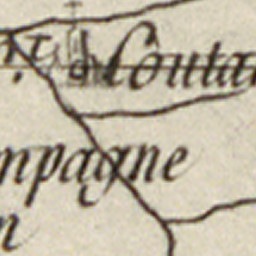 Couta
mpagne
n